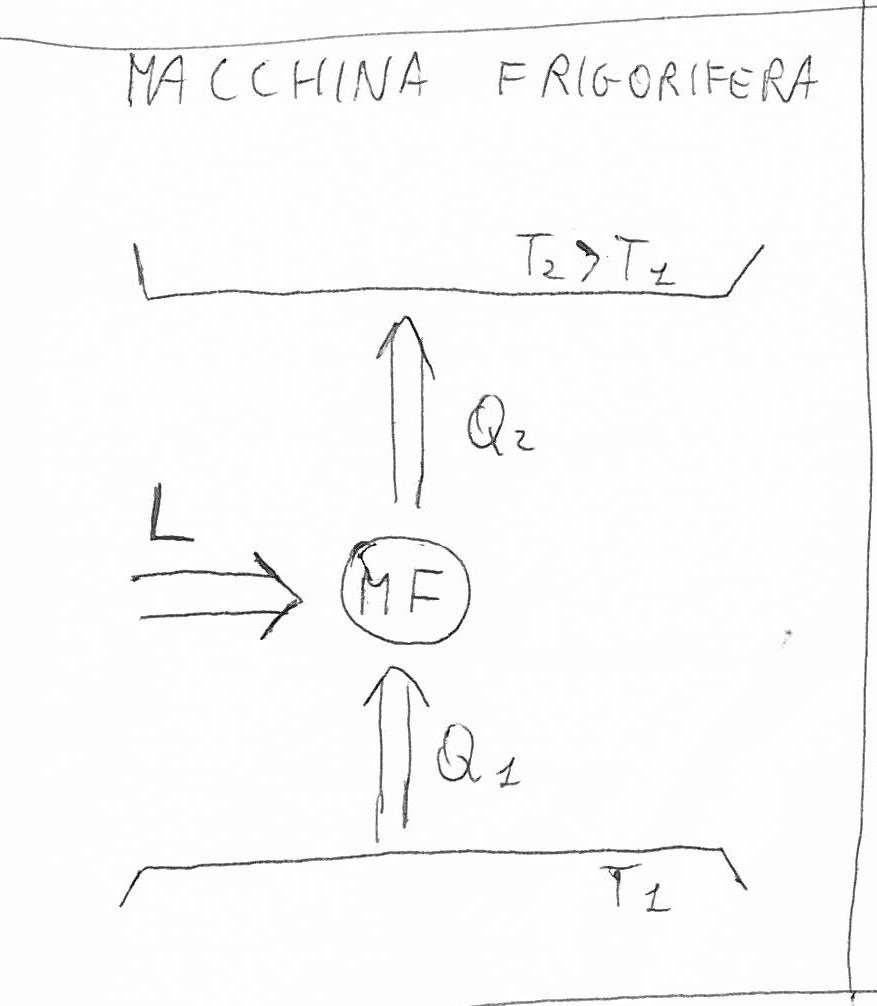 MACCHINA FRIGORIFERA
T₂ > T₁
Q₂
L
MF
Q₁
T₁